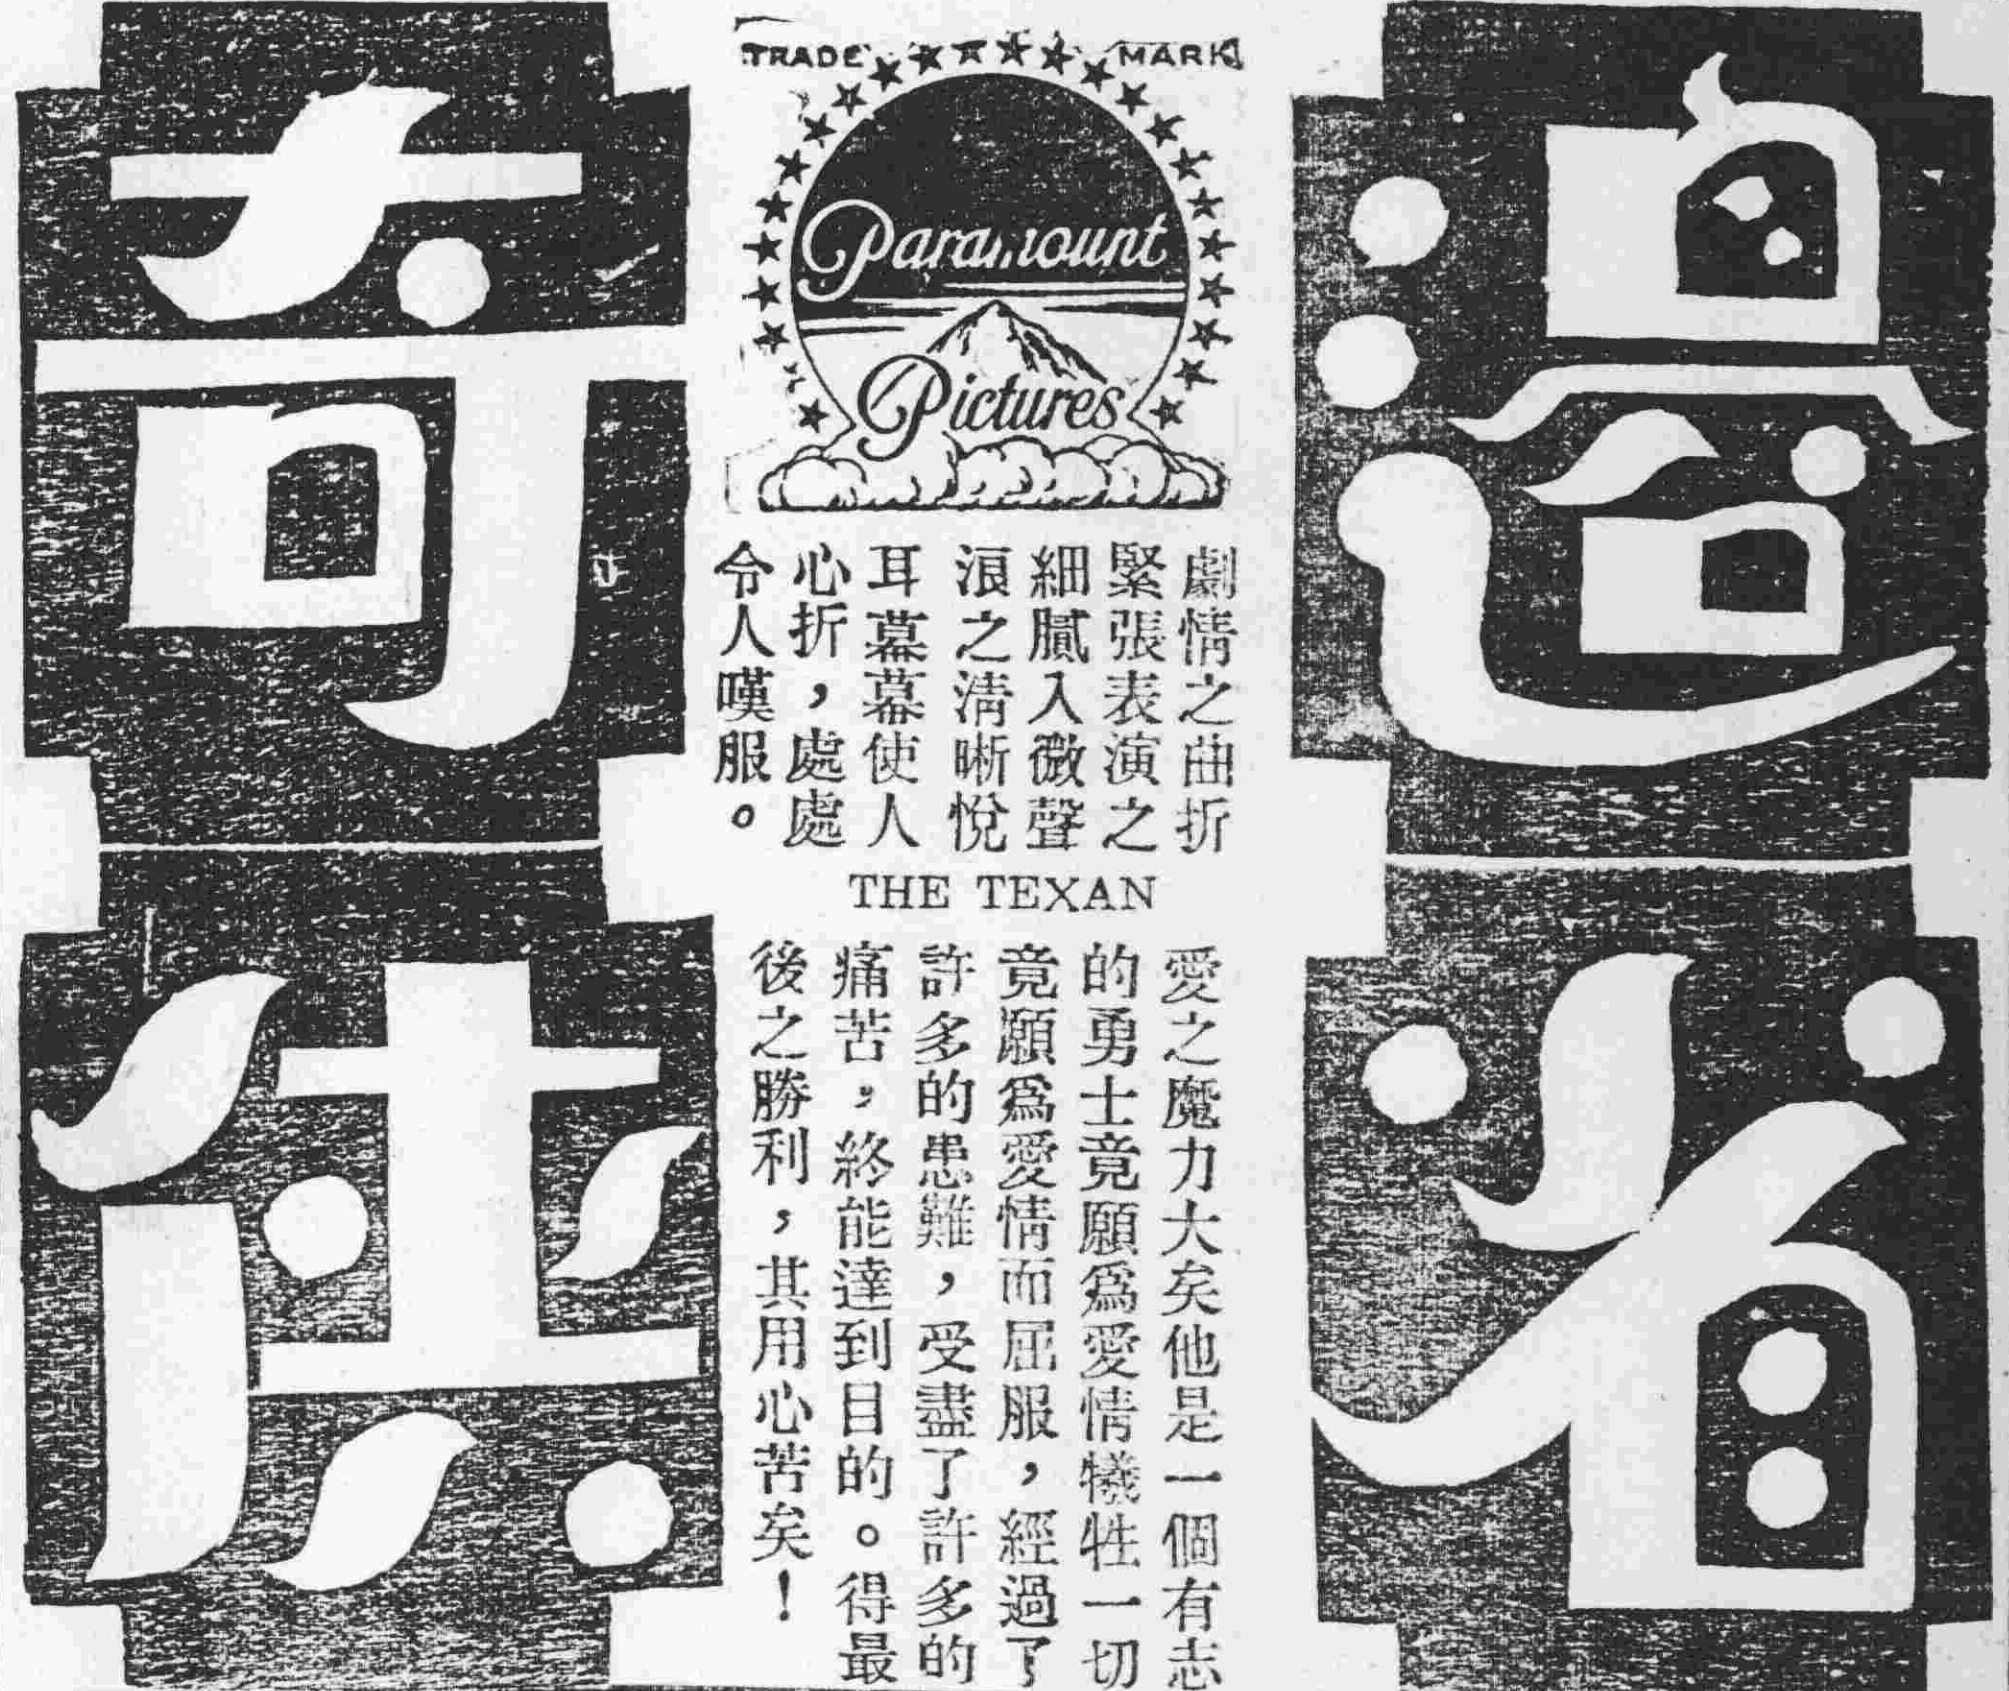 邊省
奇俠
TRADE MARK
Paramount
Pictures
劇情之曲折
緊張表演之
細膩入微聲
浪之清晰悅
耳幕幕使人
心折，處處
令人嘆服。
THE TEXAN
愛之魔力大矣他是一個有志
的勇士竟願爲愛情犧牲一切
竟願爲愛情而屈服，經過了
許多的患難，受盡了許多的
痛苦，終能達到目的。得最
後之勝利，其用心苦矣！